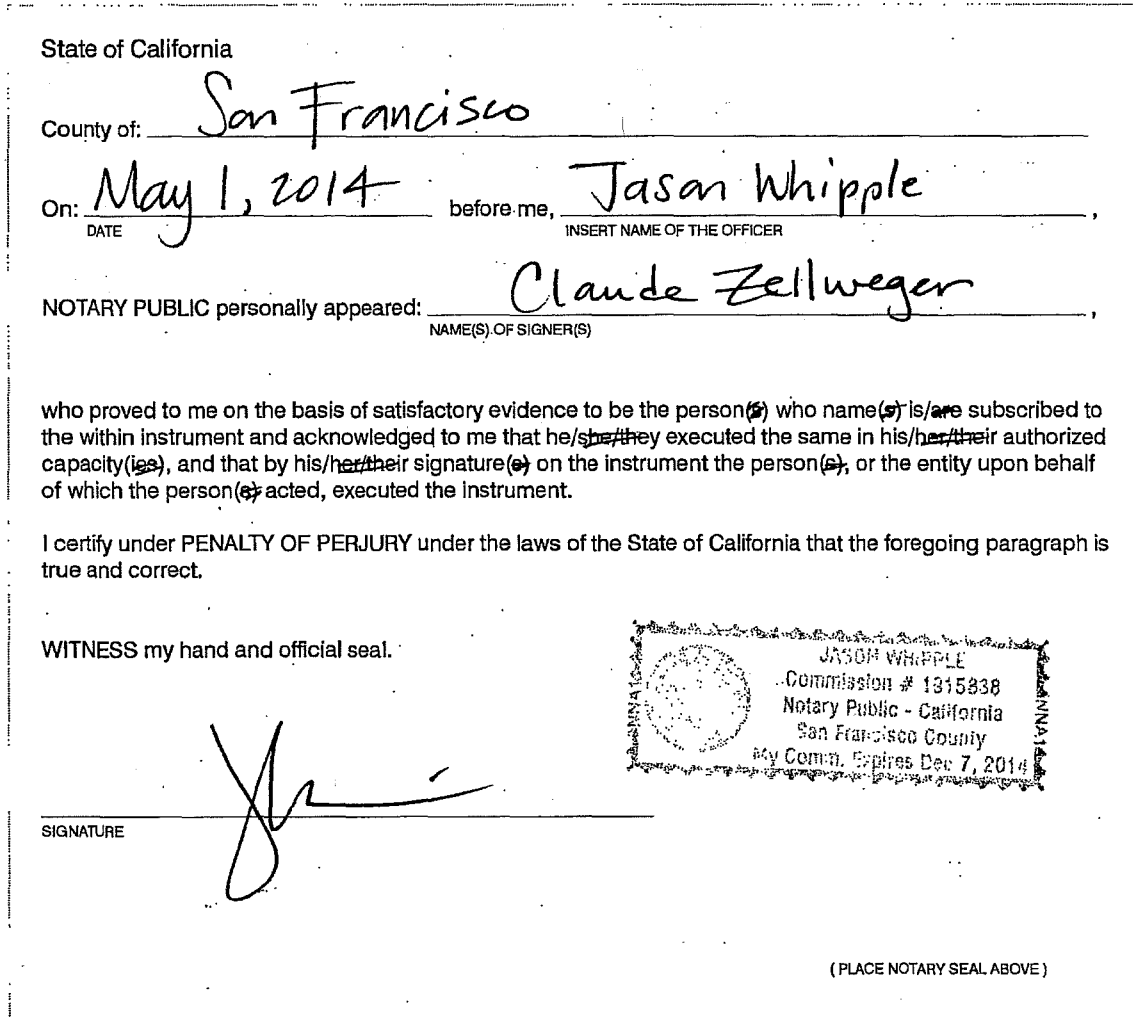 State of California
County of: San Francisco
On: May 1, 2014 before me, Jason Whipple,
DATE INSERT NAME OF THE OFFICER
NOTARY PUBLIC personally appeared: Claude Zellweger,
NAME(S) OF SIGNER(S)
who proved to me on the basis of satisfactory evidence to be the person(s) who name(s) is/are subscribed to
the within instrument and acknowledged to me that he/she/they executed the same in his/her/their authorized
capacity(ies), and that by his/her/their signature(s) on the instrument the person(s), or the entity upon behalf
of which the person(s) acted, executed the instrument.
I certify under PENALTY OF PERJURY under the laws of the State of California that the foregoing paragraph is
true and correct.
WITNESS my hand and official seal.
JASON WHIPPLE
Commission # 1315838
Notary Public - California
San Francisco County
My Comm. Expires Dec 7, 2014
SIGNATURE
(PLACE NOTARY SEAL ABOVE)